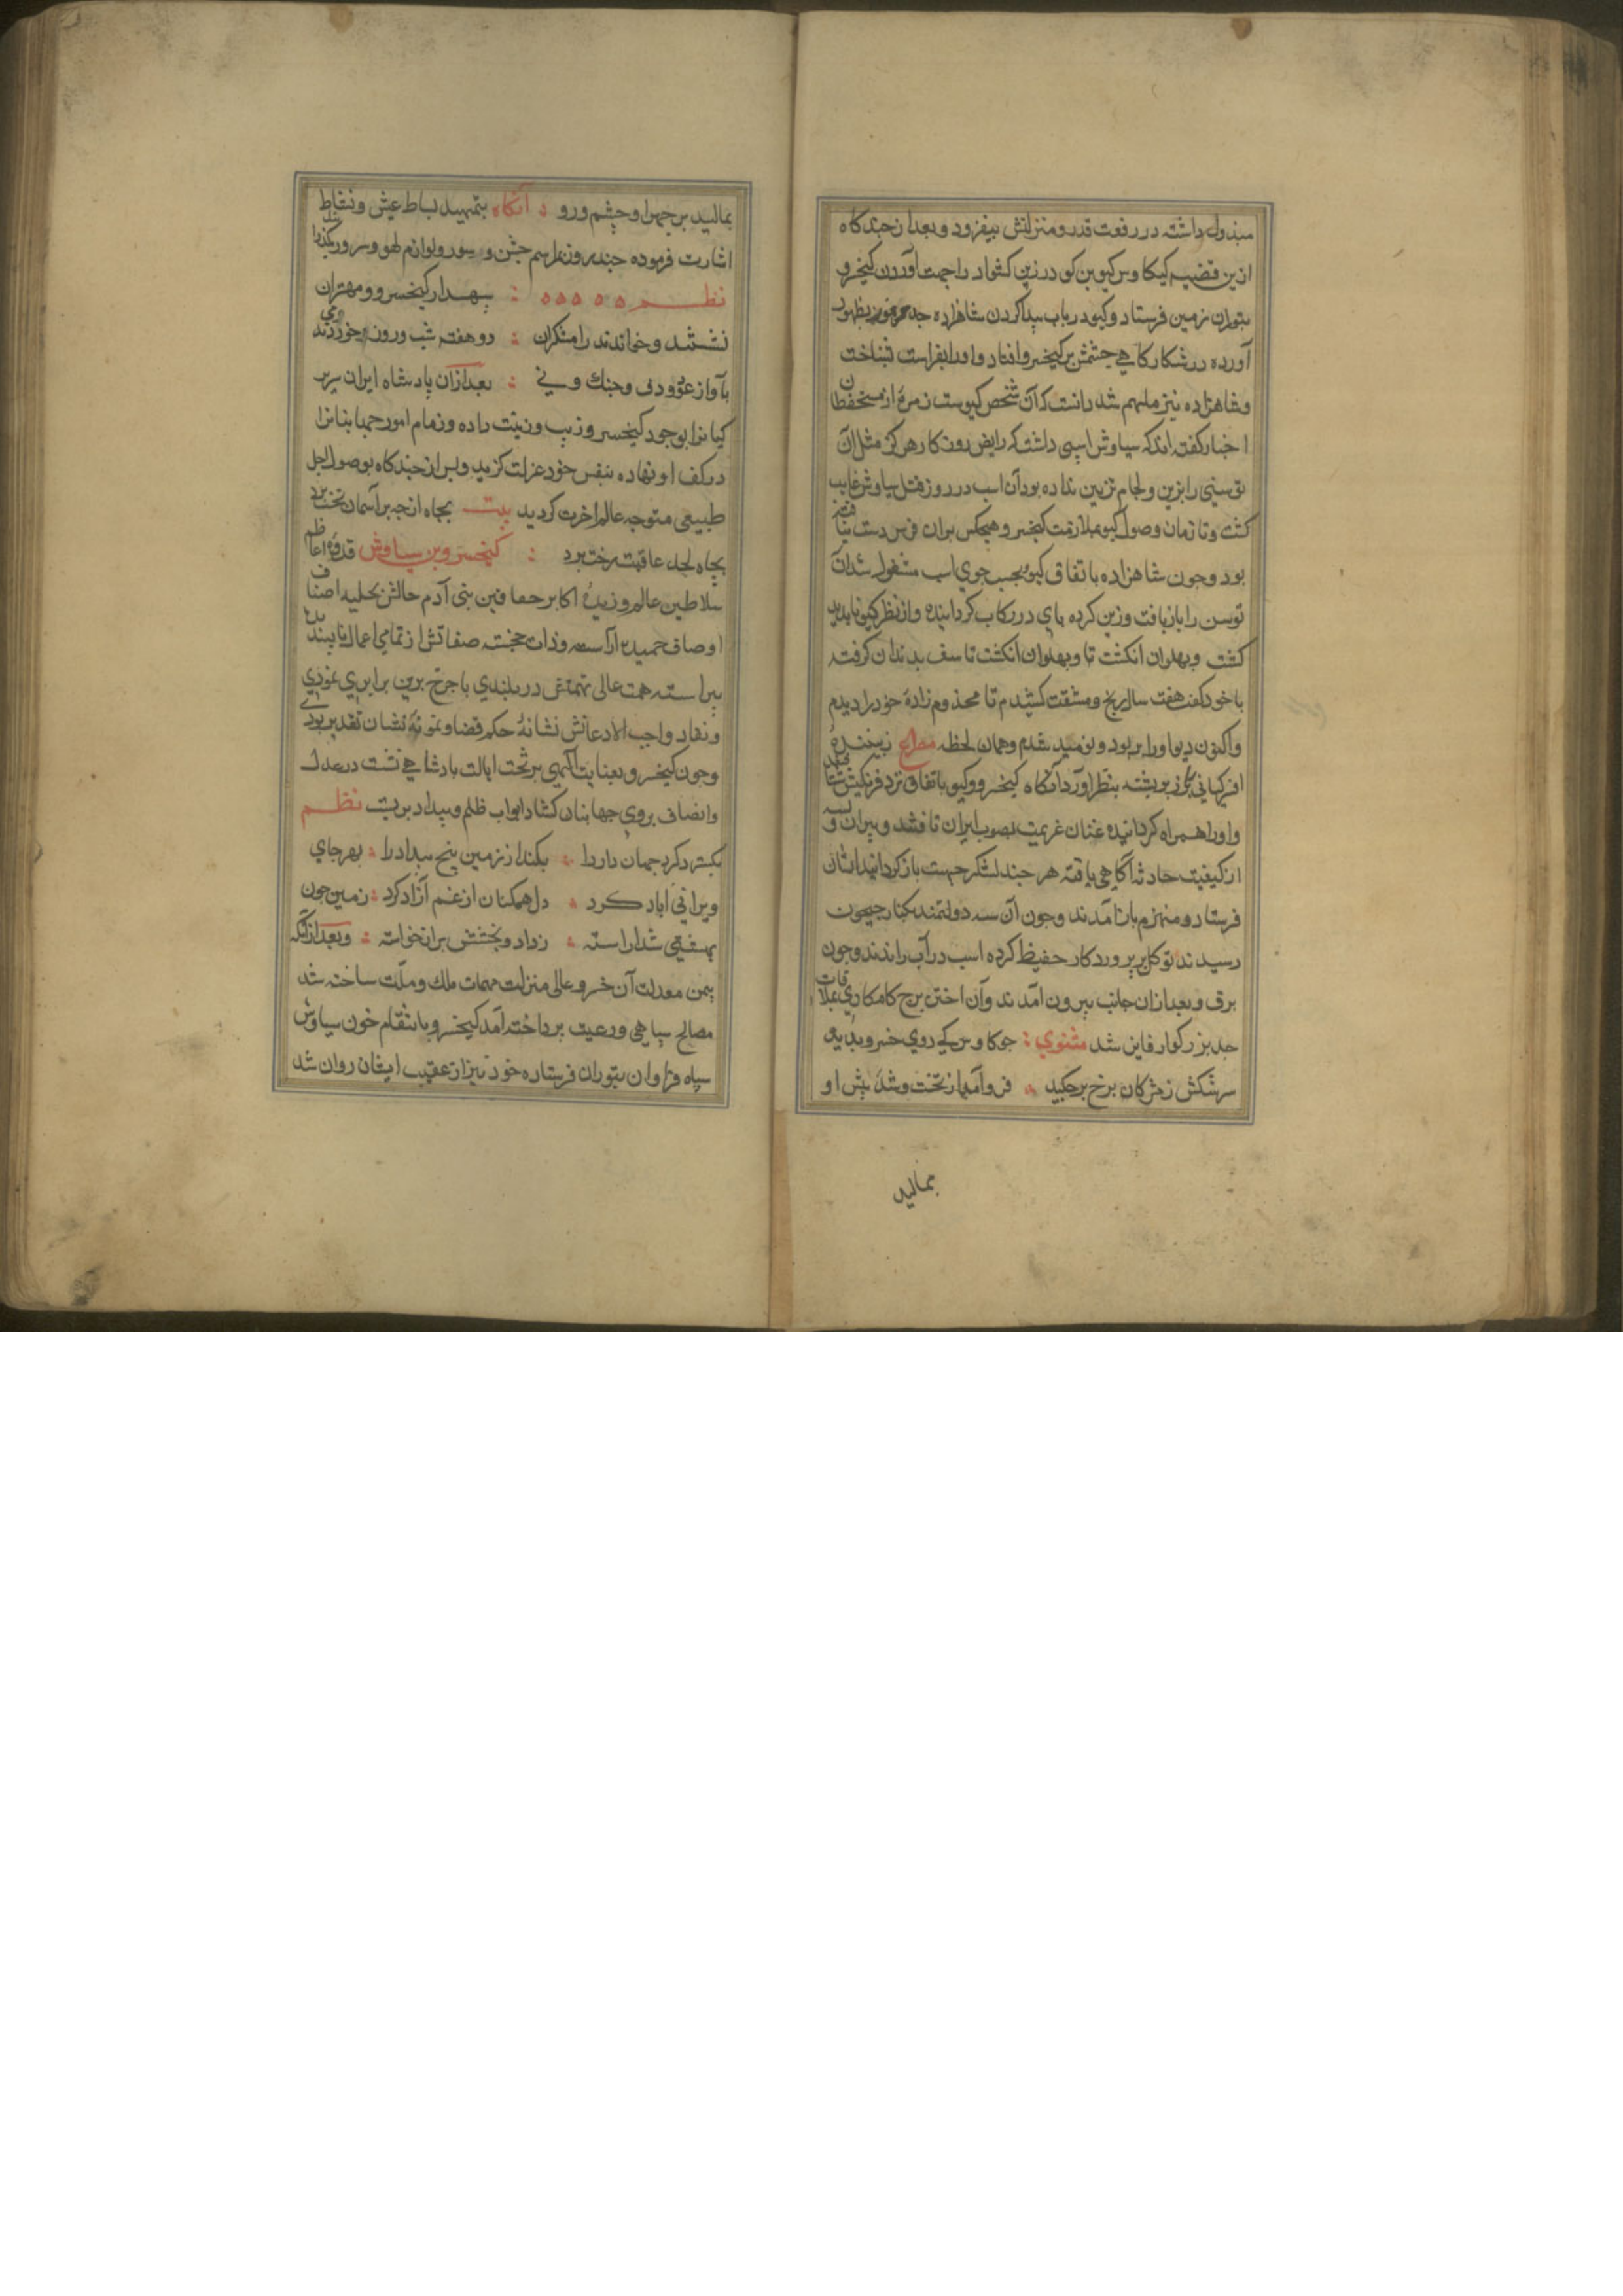 مبذول داشته در رفعت قدر و منزلتش بیفزود و بعد از چند کاه
ازین قضیه کیکاوس کیو بن کودرز بن کشواد را جهت آوردن کیخسرو
بتوران زمین فرستاد و کیو در باب پیدا کردن شاهزاده جد موفور بظهور
آورده در شکارکاهی چشمش بر کیخسرو افتاد و او را بفراست شناخت
و شاهزاده نیز ملهم شد دانست که آن شخص کیوست زمرهٔ از مستحفظان
اخبار کفته اند که سیاوش اسپی داشت که رایض روزکار هرکز مثل آن
توسنی را بزین و لجام تزیین نداده بود آن اسب در روز قتل سیاوش غایب
کشت و تا زمان وصول کیو بملازمت کیخسرو هیچکس بران فرس دست نیافته
بود و چون شاهزاده باتفاق کیو بجست جوی اسب مشغول شد آن
توسن را بازیافت و زین کرده پای در رکاب کردانیده و از نظر کیو ناپدید
کشت و پهلوان انکشت تا و پهلوان انکشت تاسف بدندان کرفته
با خود کفت هفت سال رنج و مشقت کشیدم تا مخدوم زادهٔ خود را دیدم
و اکنون دیو او را بربود و نومید شدم و همان لحظه مصراع زیبنده
افسر کیانی باز بر پشته بنظر آورد آنکاه کیخسرو و کیو باتفاق نزد فرنکیس شتافتند
و او را همراه کردانیده عنان عزیمت بصوب ایران تافتند و پیران ویسه
از کیفیت حادثه آکاهی یافته هر چند لشکر جهت باز کردانید ایشان
فرستاد و منهزم باز نآمدند و چون آن سه دولتمند بکنار جیحون
رسیدند توکل بر پروردکار حفیظ کرده اسب در آب راندند و چون
برق و بعد ازان جانب بیرون آمدند و آن اختر برج کامکاری بملاقات
جد بزرکوار فایز شد مثنوی چو کاوس کی روی خسرو بدید
سرشکش ز مژکان برخ برچکید فرو آمد از تخت و شد پیش او
بمالید
بمالید بر چهر او چشم و رو آنکاه بتمهید بساط عیش و نشاط
اشارت فرموده چند روز مراسم جشن و سور و لوازم لهو و سرور بکذرانید
نظم سپهدار کیخسرو و مهتران
نشستند و خواندند رامشکران دو هفته شب و روز خوردند می
بآواز عود و دف و چنک و نی بعد ازان پادشاه ایران سریر
کیانرا بوجود کیخسرو زیب و زینت داده و زمام امور جهانبانرا
در کف او نهاده بنفس خود عزلت کزید و پس از چند کاه بوصول اجل
طبیعی متوجه عالم آخرت کردید بیت بجاه ار چه بر آسمان تخت برد
بچاه لحد عاقبت رخت برد کیخسرو بن سیاوش قدوهٔ اعاظم
سلاطین عالم و زبدهٔ اکابر خواقین بنی آدم حالش بحلیه اصناف
اوصاف حمیده آراسته و ذات خجسته صفاتش از تمامی اعمال ناپسندیده
پیراسته همت عالی نهمتش در بلندی با چرخ برین برابری نمودی
و نفاذ واجب الاذعانش نشانهٔ حکم قضا و نمونهٔ نشان تقدیر بودی
و چون کیخسرو بعنایت الهی بر تخت ایالت پادشاهی نشست در عدل
و انصاف بروی جهانیان کشاد ابواب ظلم و بیداد بربست نظم
بکسترد کرد جهان داد را بکند از زمین بیخ بیداد را بهر جای
ویرانی آباد کرد دل همکنان از غم آزاد کرد زمین چون
بهشتی شد آراسته ز داد و بخشش پر از خواسته و بعد از آنکه
بیمن معدلت آن خسرو عالی منزلت مهمات ملک و ملت ساخته شد
مصالح سپاهی و رعیت پرداخته آمد کیخسرو بانتقام خون سیاوش
سپاه فراوان بتوران فرستاده خود نیز از عقب ایشان روان شد